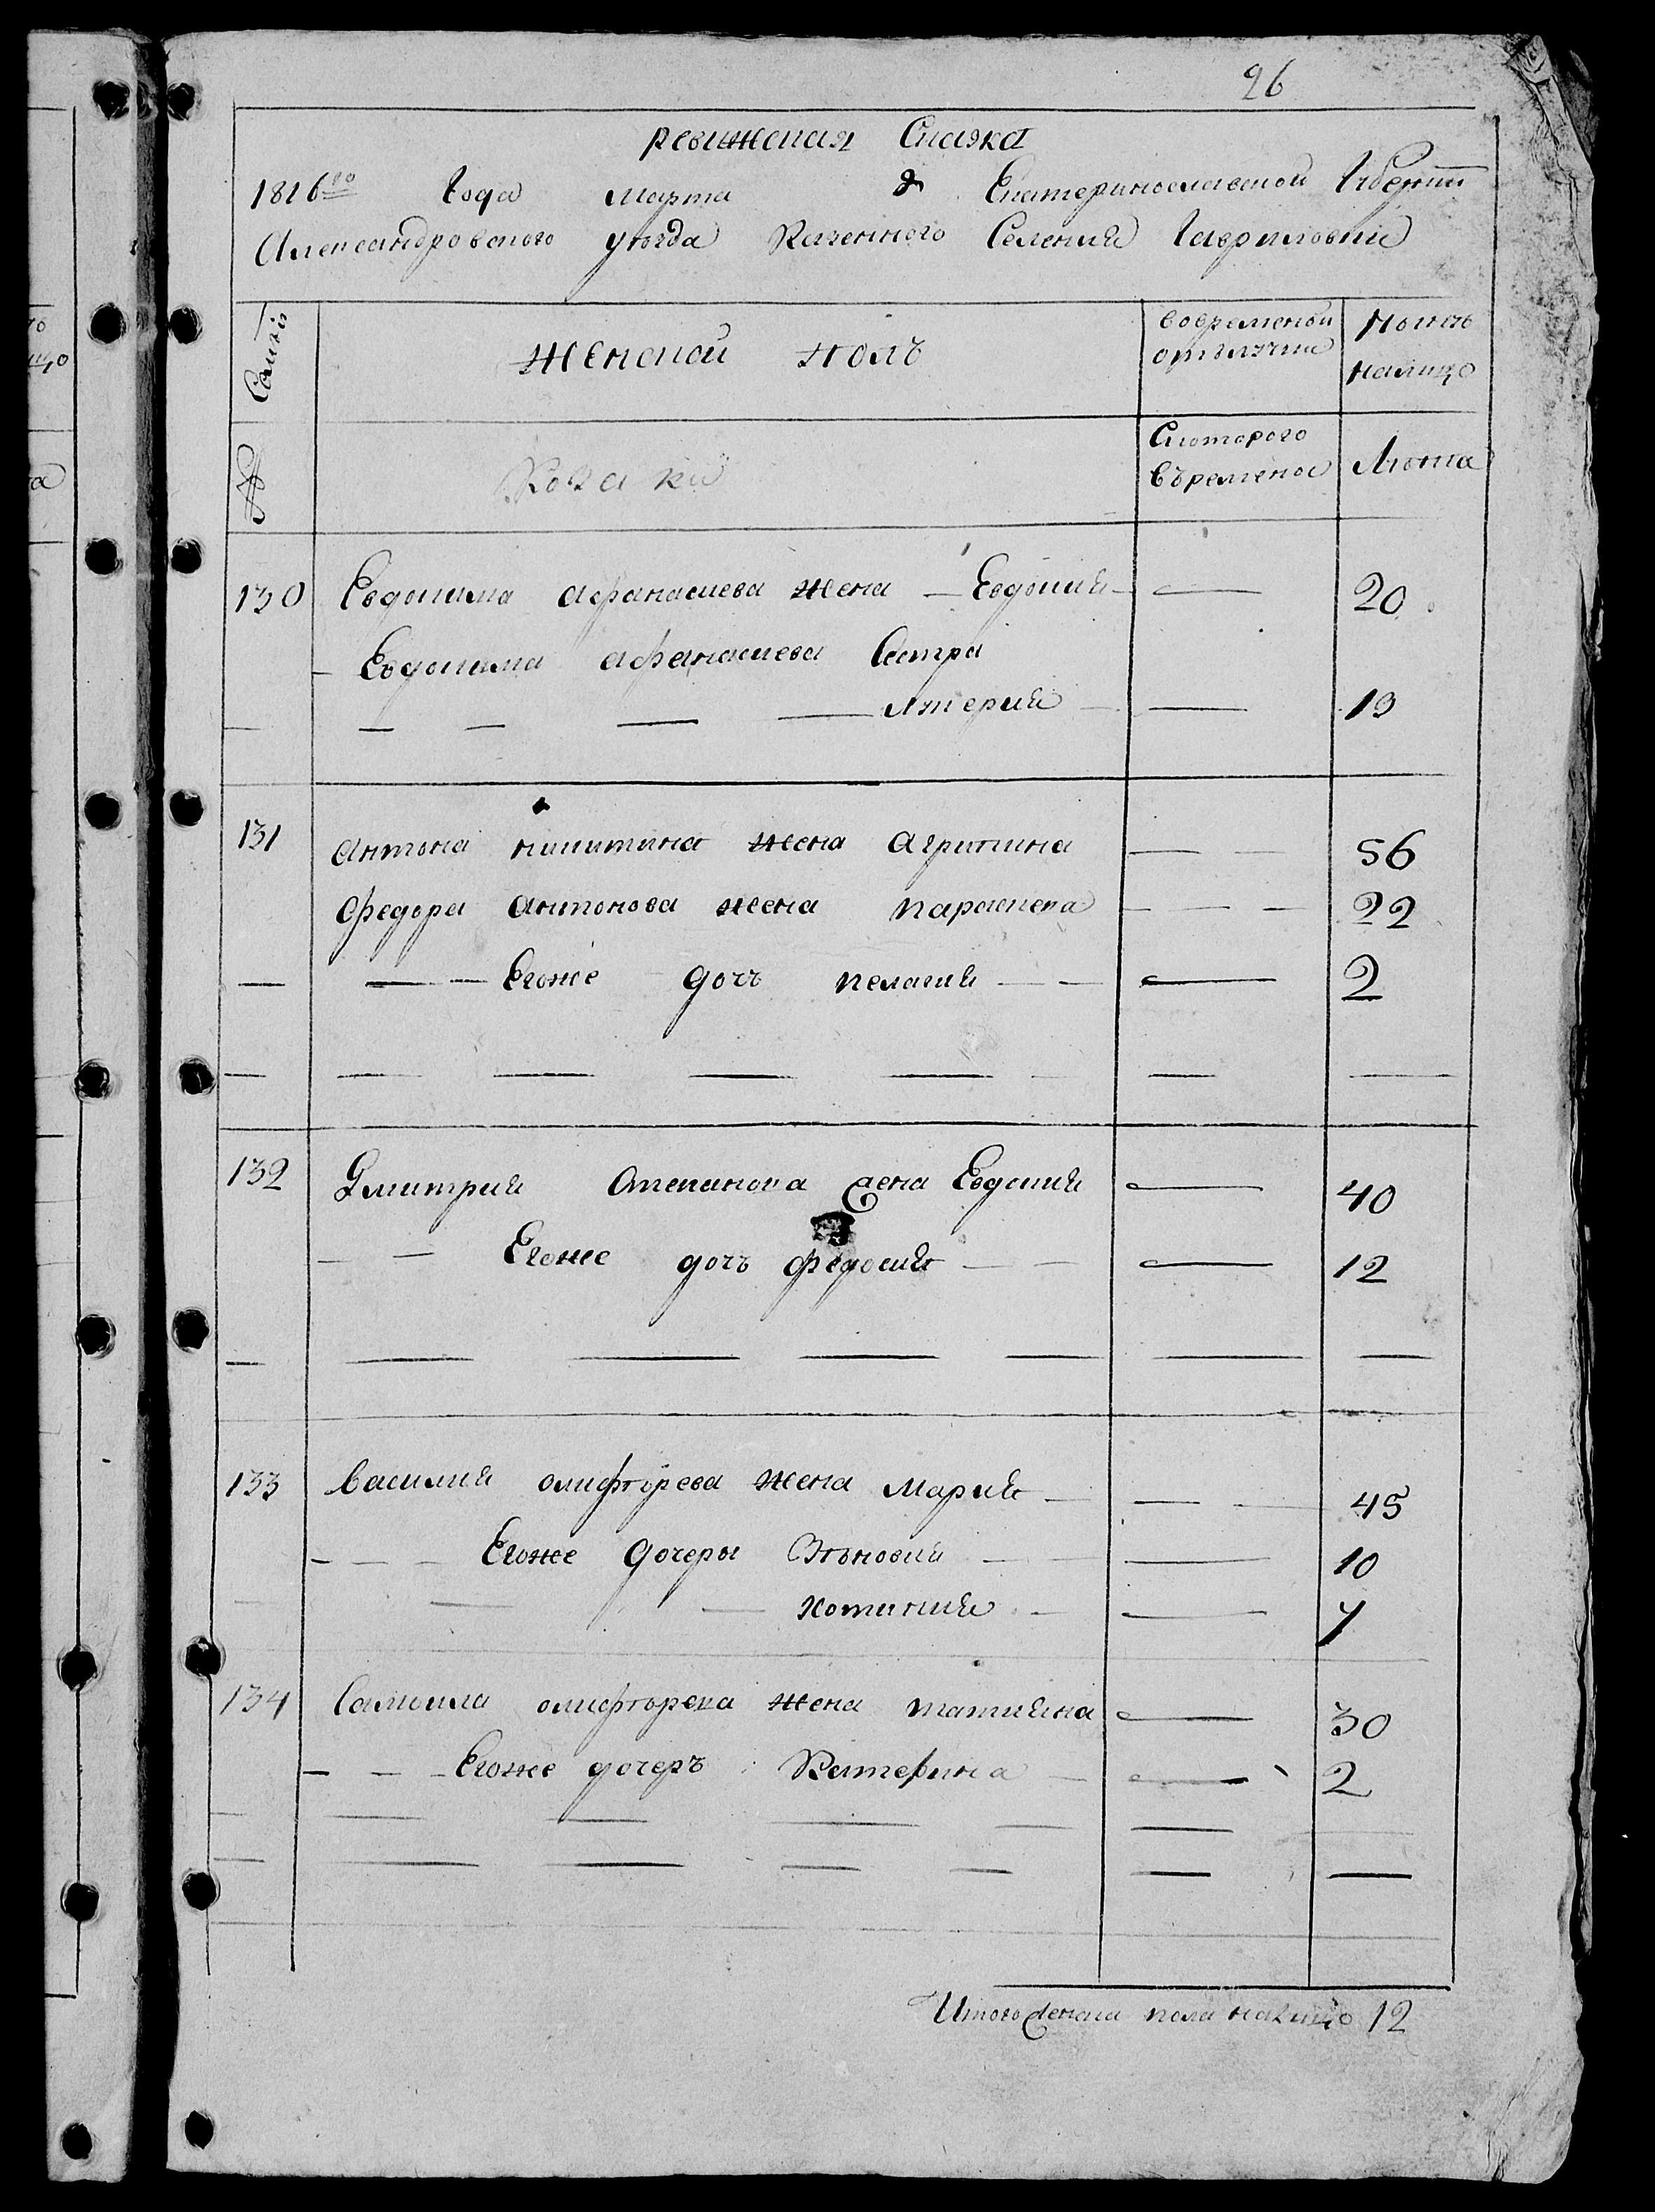 26
ревижская Сказка
1816го Года Марта д Екатеринославской Губернии
Александровского уезда Казенного Селения Гавриловки
Семьи
женской полъ
вовременой отълучки
Ныне налицо
№
Козаки
Скоторого въремена
Лета
130 Евдокима афанасиева жена — Евдокия — 20
Евдокима афанасиева Сестра
Лукерия — 19
131 антона никитина жена агрипина — 56
федора антонова жена параскева — 22
Егоже доч пелагия — 2
132 Дмитрия Степанова жена Евдокия — 40
Егоже доч федосия — 12
133 Василия олифѣрева жена Мария — 45
Егоже дочеры Зѣновия — 10
хотиния — 7
134 Самоила олифѣрева жена татияна — 30
Егоже дочеръ Катерина — 2
Итого женска пола налицо 12